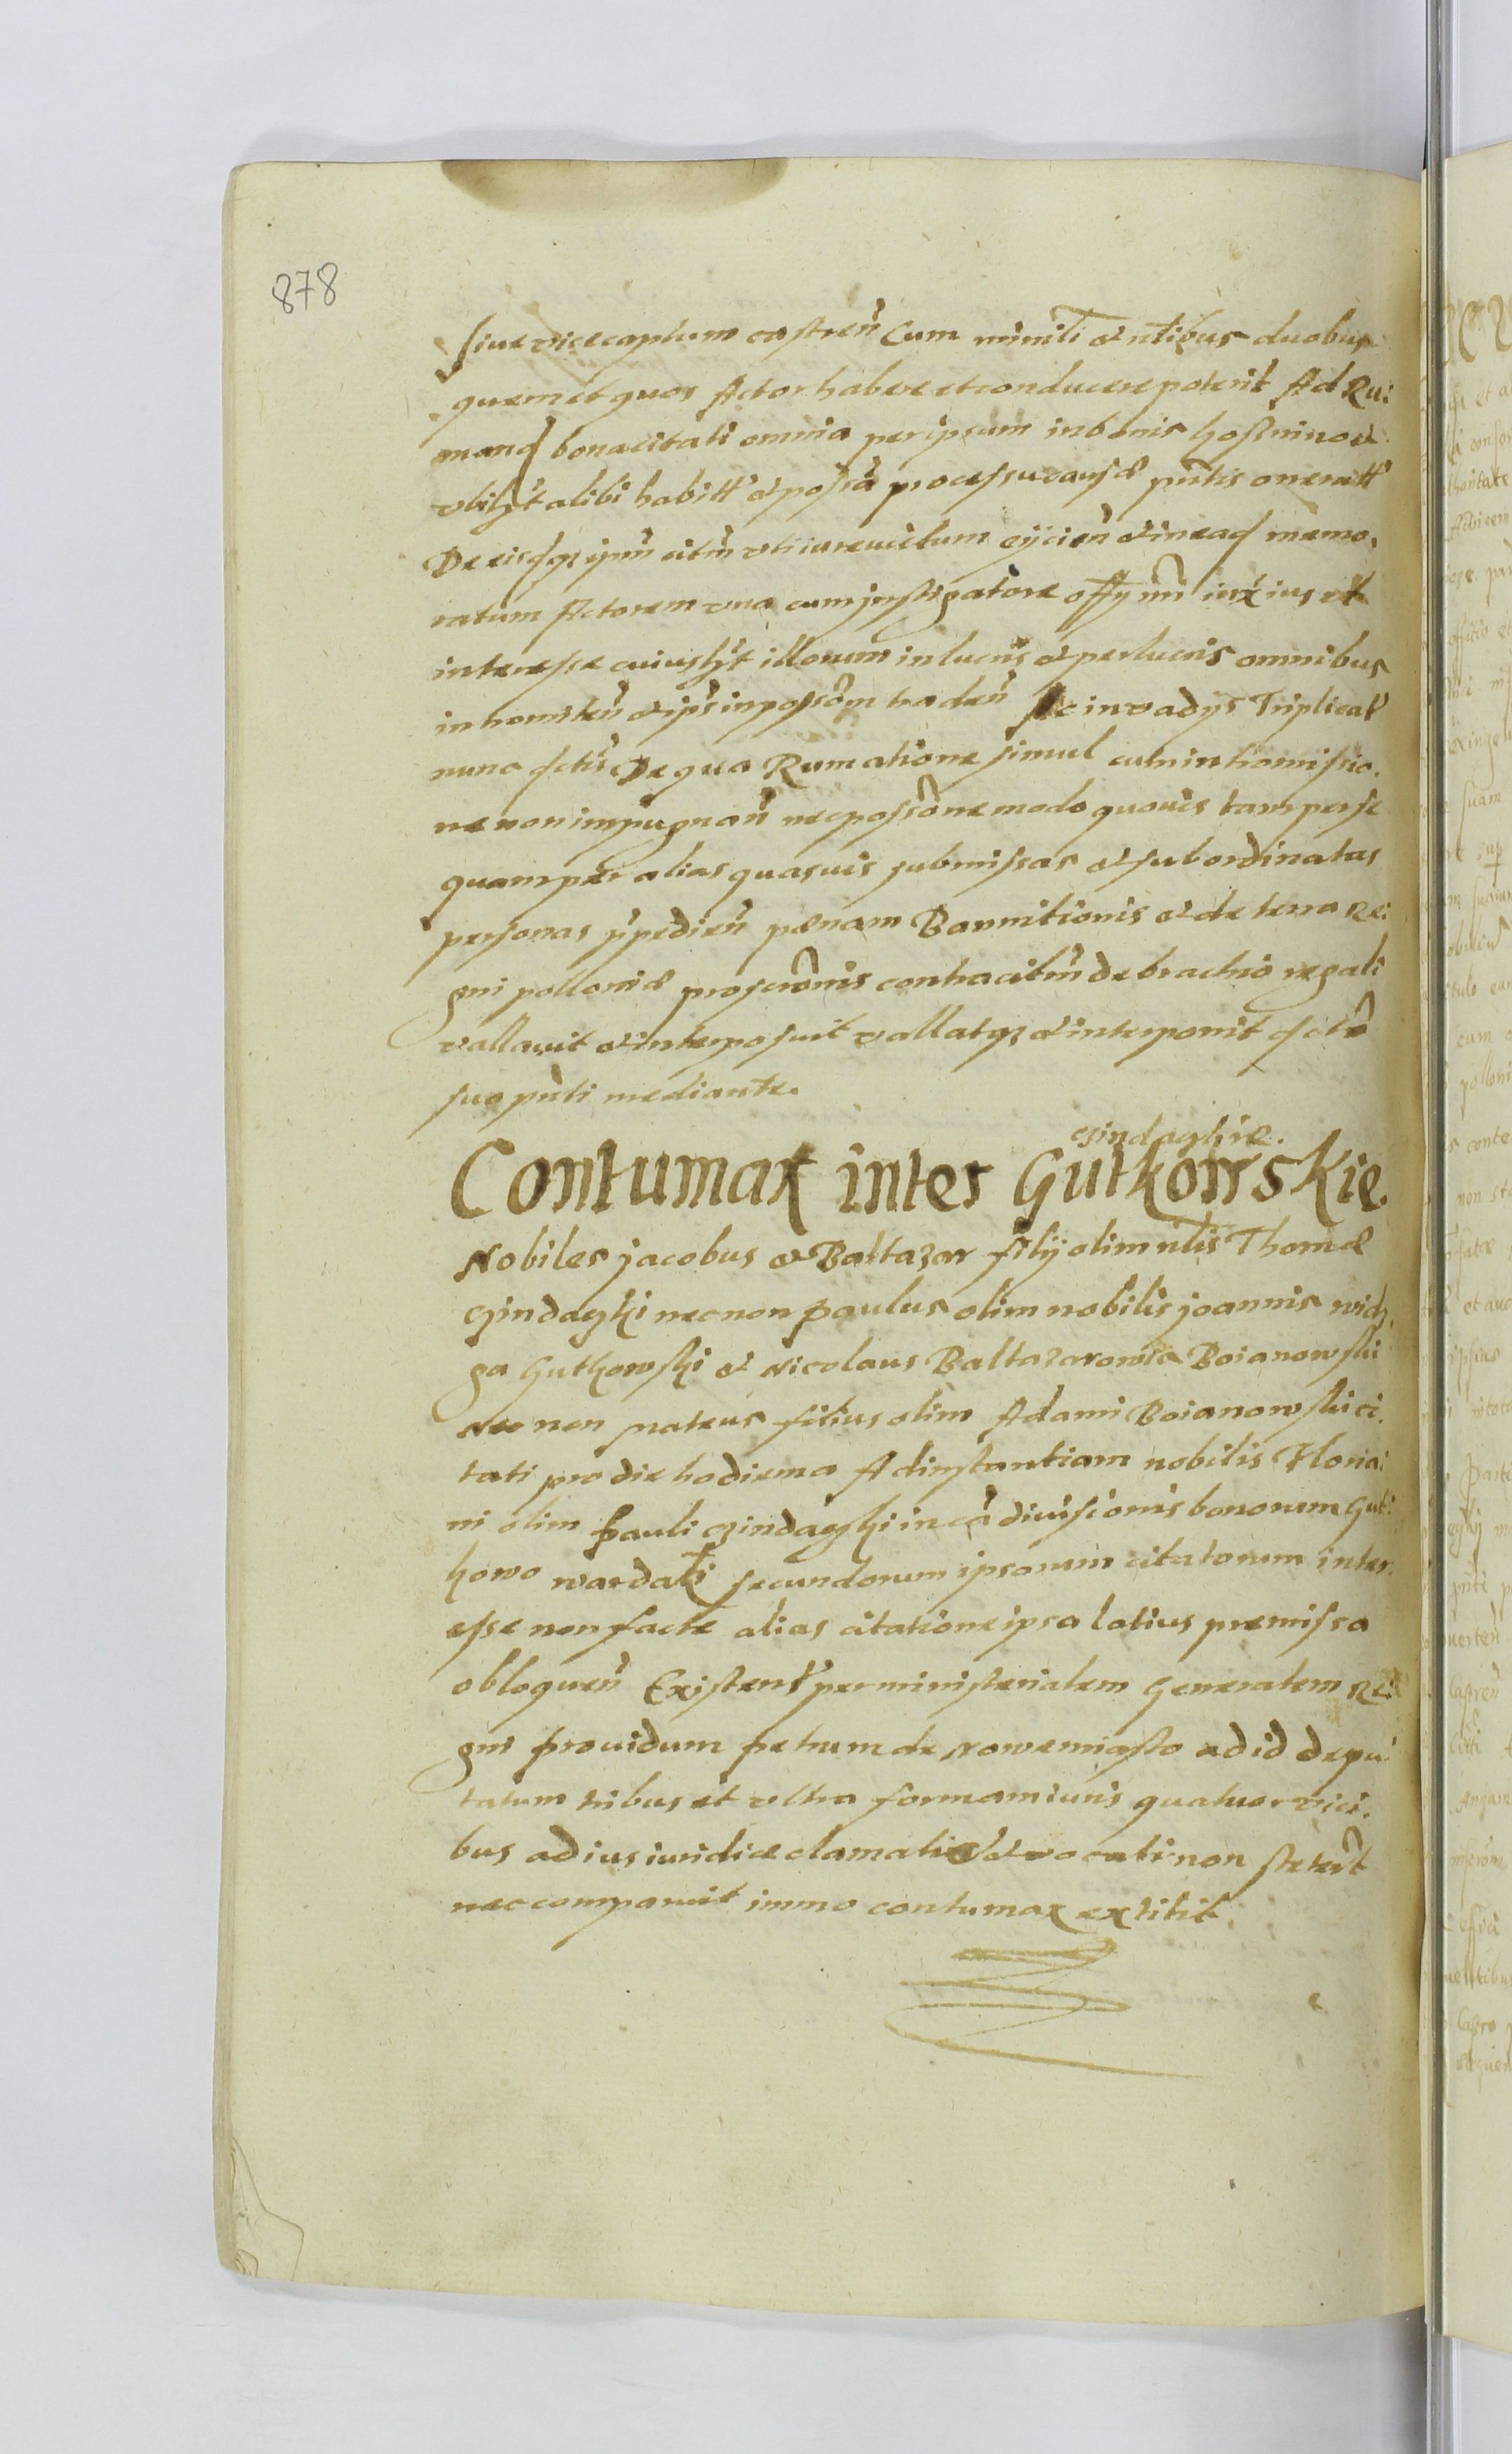 878
siue vicecaptum castreñ Cum minili et nlibus duobus
quem et quos Actor habere et conducere poterit Ad Ru:
mand bona citati omnia per ipsum in bonis hostnino et
vbilzt alibi habitt et possa processu causæ pntis oneratt
De eisdqz ipm citm vti iure victum eijcien et in ead memo,
ratum Actorem vna cum instigatore offy nri iux ius et
interesse cuiuslzt illorum in lucris et per lucris omnibus
intromitten et ips in possom traden in vadys Triplicat
nunc dctis De qua Rumatione simul cum intromissio.
ne non impugnan nec possone modo quouis tam per se
quam per alias quasuis submissas et subordinatas
personas ipedien pœnam Bannitionis et de terra Re:
gni polloniæ proscronis contra citm de brachio regali
vallauit et interposuit vallatqz et interponit dcto
suo pnti mediante.
czindaghie.
Contumax inter Gutkowskie.
Nobiles jacobus et Baltazar filij olim nlis Thomæ
czindaghi nec non paulus olim nobilis joannis
ga Gutkowski et Nicolaus Baltazarowic Boianowski
nec non mateus filius olim Adami Boianowski ci.
tati pro die hodierna Ad instantiam nobilis Floria:
ni olim pauli czindaghi in ca diuisionis bonorum Gut:
kowo secundorum ipsorum citatorum inter.
esse non facte alias citatione ipsa latius premissa
obloquen Existent per ministerialem Generalem Re:
gni prouidum petrum de Nowemiasto ad id depu:
tatum tribus et vltra formam iuris quatuor vici.
bus ad ius iuridice clamati et vocati non steterut
nec comparuit immo contumax extitit.